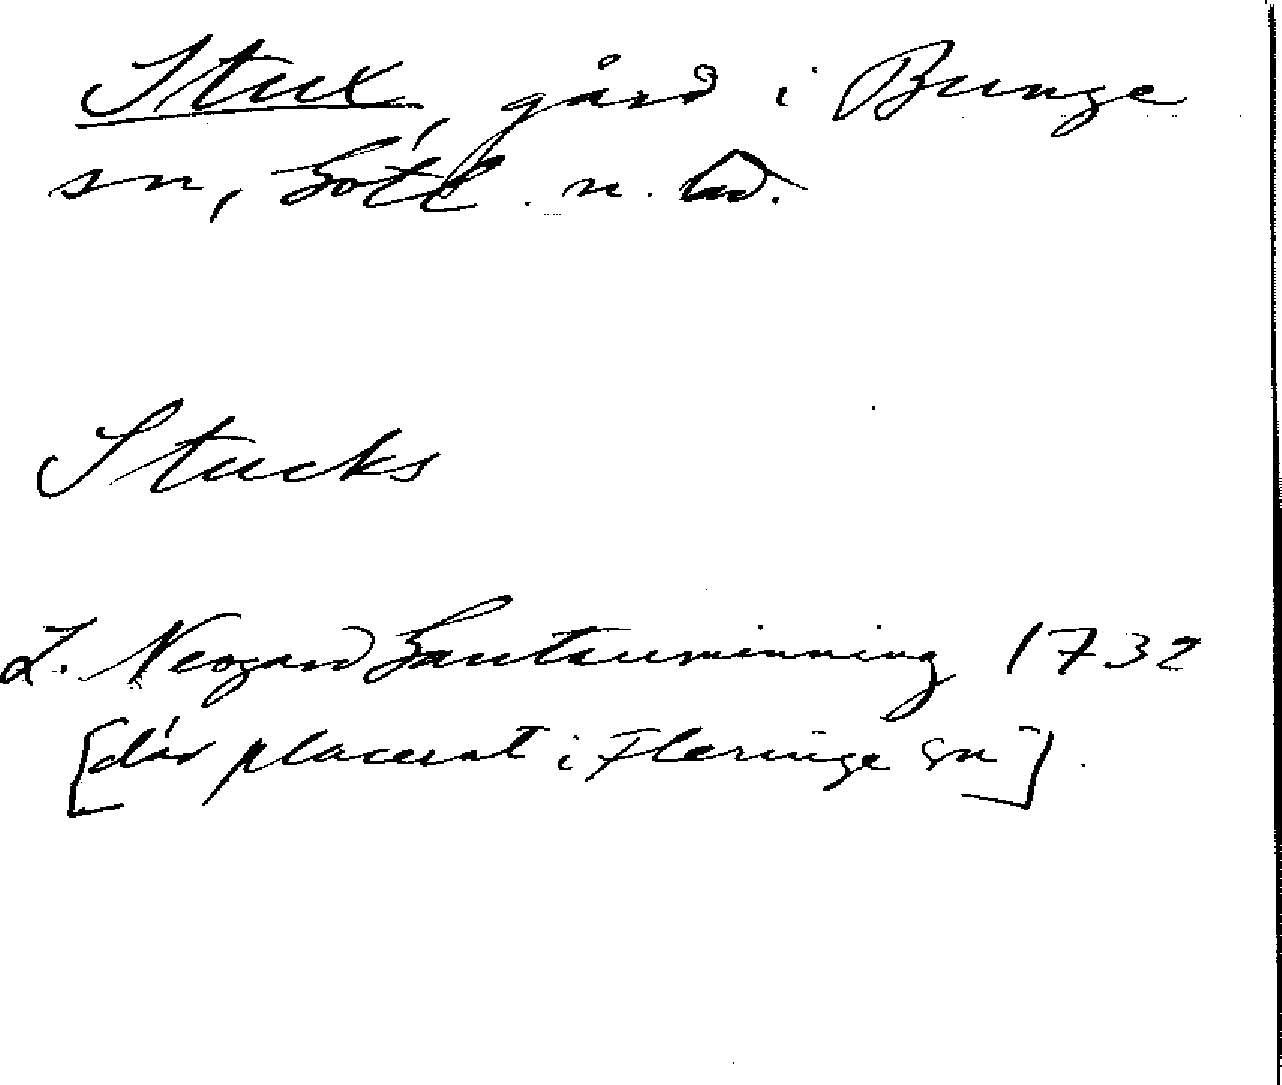 Stux, gård i Bunge
sn, Gotl. n. hd.
Stucks
L. Neogard Gautauminning 1732
[där placerat i Fleringe sn]